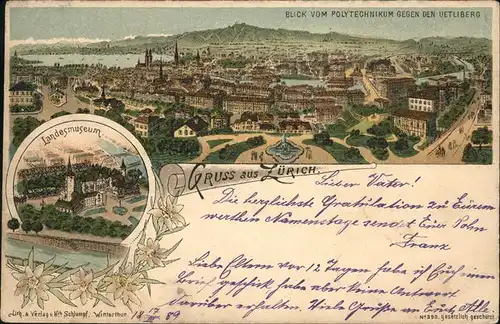 BLICK VOM POLYTECHNIKUM GEGEN DEN UETLIBERG
Landesmuseum.
GRUSS AUS ZÜRICH.
Lieber Vater!
Die herzlichste Gratulation zu Eurem
werthen Namenstage sendet Euer Sohn
Franz
Liebe Eltern vor 12 Tagen habe ich Euch einen
Brief geschickt habe aber keine Antwort
darüber erhalten. Viele Grüße an Euch Alle
Lith. & Verlag v. Hch Schlumpf, Winterthur.
18 99
No 390. Gesetzlich geschützt.